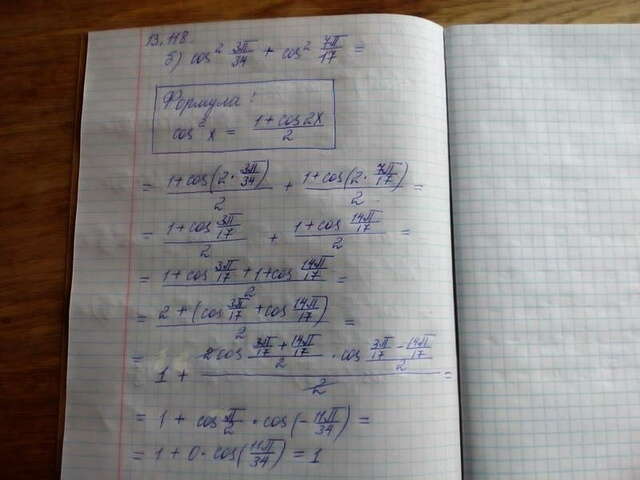 13.118
б) cos² 3π/34 + cos² 7π/17 =
Формула:
cos²x = (1 + cos2x)/2
= (1 + cos(2 · 3π/34))/2 + (1 + cos(2 · 7π/17))/2 =
= (1 + cos 3π/17)/2 + (1 + cos 14π/17)/2 =
= (1 + cos 3π/17 + 1 + cos 14π/17)/2 =
= (2 + (cos 3π/17 + cos 14π/17))/2 =
= 1 + (2cos (3π/17 + 14π/17)/2 · cos (3π/17 − 14π/17)/2)/2 =
= 1 + cos π/2 · cos(−11π/34) =
= 1 + 0 · cos(11π/34) = 1